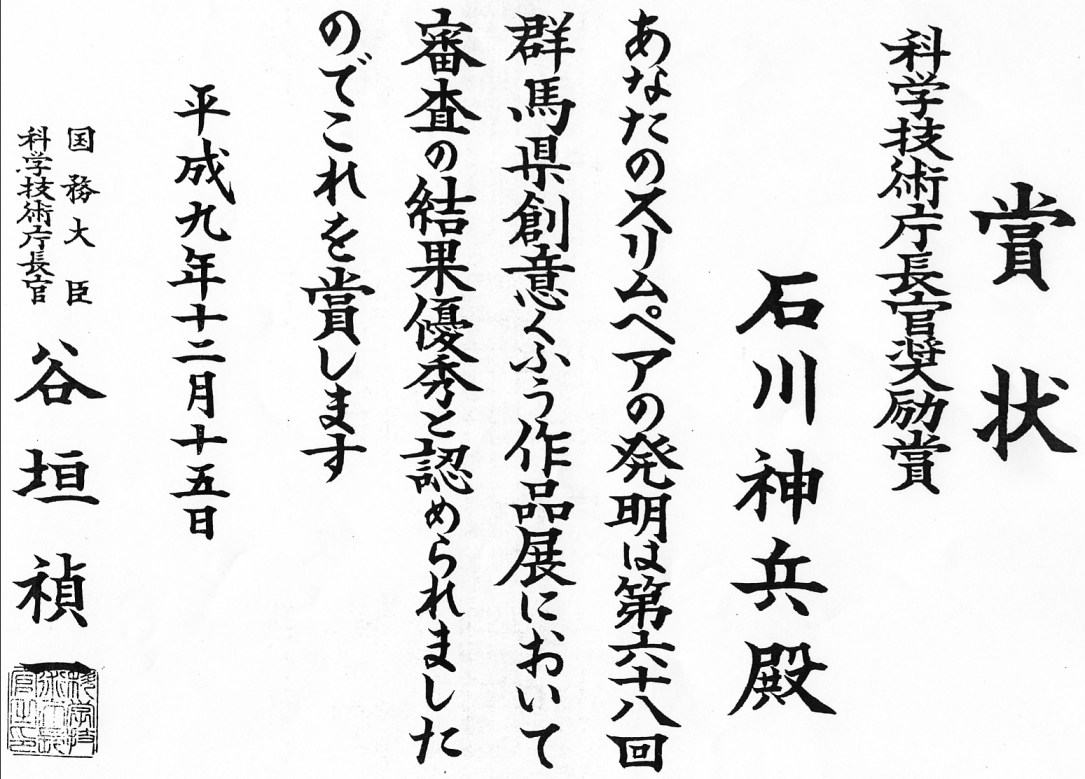 賞状
科学技術庁長官奨励賞
石川神兵殿
あなたのスリムペアの発明は第六十八回
群馬県創意くふう作品展において
審査の結果優秀と認められました
のでこれを賞します
平成九年十二月十五日
国務大臣
科学技術庁長官
谷垣禎一
科学技術庁長官之印